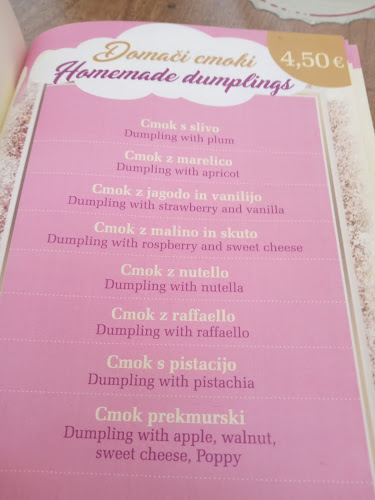 Domači cmoki
Homemade dumplings
4,50 €
Cmok s slivo
Dumpling with plum
Cmok z marelico
Dumpling with apricot
Cmok z jagodo in vanilijo
Dumpling with strawberry and vanilla
Cmok z malino in skuto
Dumpling with rospberry and sweet cheese
Cmok z nutello
Dumpling with nutella
Cmok z raffaello
Dumpling with raffaello
Cmok s pistacijo
Dumpling with pistachia
Cmok prekmurski
Dumpling with apple, walnut,
sweet cheese, Poppy